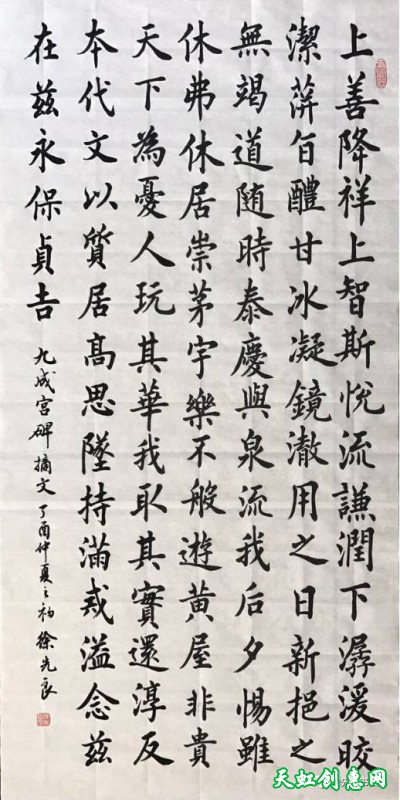 上善降祥上智斯悅流謙潤下潺湲皎
潔蓱旨醴甘冰凝鏡澈用之日新挹之
無竭道随時泰慶與泉流我后夕惕雖
休弗休居崇茅宇樂不般遊黄屋非貴
天下為憂人玩其華我取其實還淳反
本代文以質居高思墜持滿戒溢念兹
在兹永保貞吉
九成宫碑摘文丁酉仲夏之初徐先良
天虹创惠网